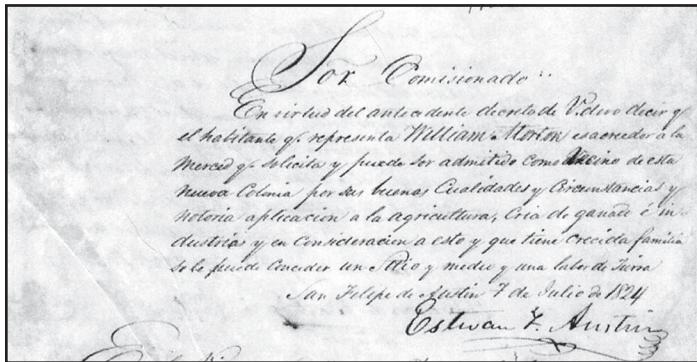 Sor Comisionado
En virtud del antecedente decreto de V. devo decir q.
el habitante q. representa William Morton es acreedor a la
Merced q. solicita y puede ser admitido como Vecino de esta
nueva Colonia por sus buenas Cualidades y Circunstancias y
notoria aplicacion a la agricultura, Cria de ganado é in
dustria y en Consideracion a esto y que tiene crecida familia
se le puede Conceder un Sitio y medio y una labor de Tierra
San Felipe de Austin 7 de Julio de 1824
Estevan F. Austin